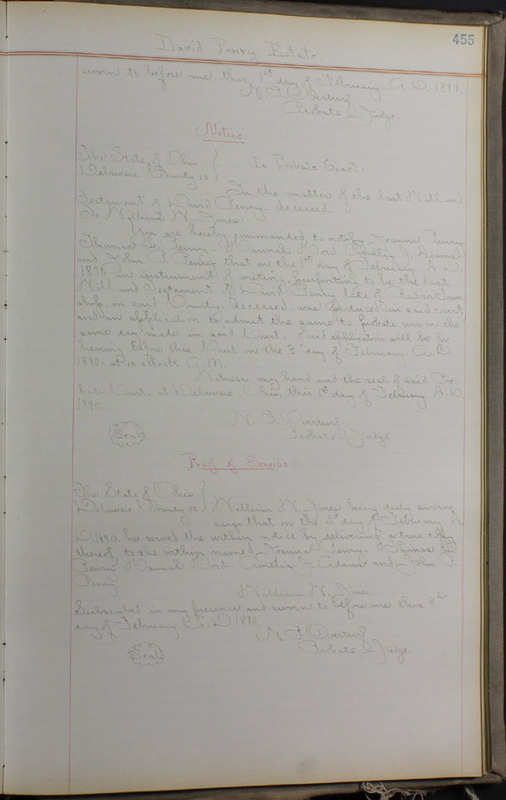 455
David Penry Estate.
sworn to before me, this 1st day of February A.D. 1890.
N. F. Overturf
Probate Judge.
Notice
The State of Ohio
Delaware County ss
In Probate Court.
In the matter of the last Will and
Testament of David Penry deceased.
To William W. Jones
You are hereby commanded to notify Joanna Penry,
Thomas Penry, Hannah Hord,
and John P. Penry that on the 1st day of February A.D.
1890 an instrument of writing purporting to be the last
Will and Testament of David Penry late of Radnor Town
ship, in said County, deceased, was produced in said court
and an application to admit the same to probate was on the
same day made in said Court. Said application will be for
hearing before this Court on the 3d day of February, A.D.
1890, at 10 o'clock A.M.
Witness my hand and the seal of said Pro
bate Court, at Delaware, Ohio, this 1st day of February A.D.
1890
N. F. Overturf
Probate Judge
(Seal)
Proof of Service
The State of Ohio
Delaware County ss
William W. Jones being duly sworn
says that on the 3d day of February A
D. 1890, he served the within notice by delivering a true copy
thereof to the within named Joanna Penry, Thomas
Penry, Hannah Hord, and John P.
Penry
William W. Jones
Subscribed in my presence and sworn to before me this 3d
day of February A.D. 1890
N. F. Overturf
Probate Judge
(Seal)